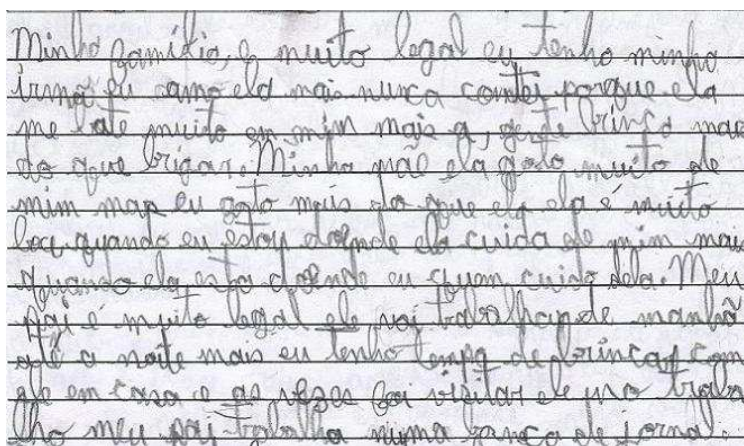 Minha família, e muito legal eu tenho minha
irmã eu amo ela mais nunca contei porque ela
me bate muito em mim mais a, gente brinca mas
do que brigar. Minha mãe ela goto muito de
mim mas eu goto mais do que ela ela é muito
boa quando eu estou doende ela cuida de mim mais
quando ela esta doende eu quem cuido dela. Meu
pai é muito legal ele vai trabalhar de manhã
até a noite mais eu tenho tempo de brincar com
ele em casa e as vezes vai visitar ele no traba
lho meu pai trabalha numa banca de jornal.